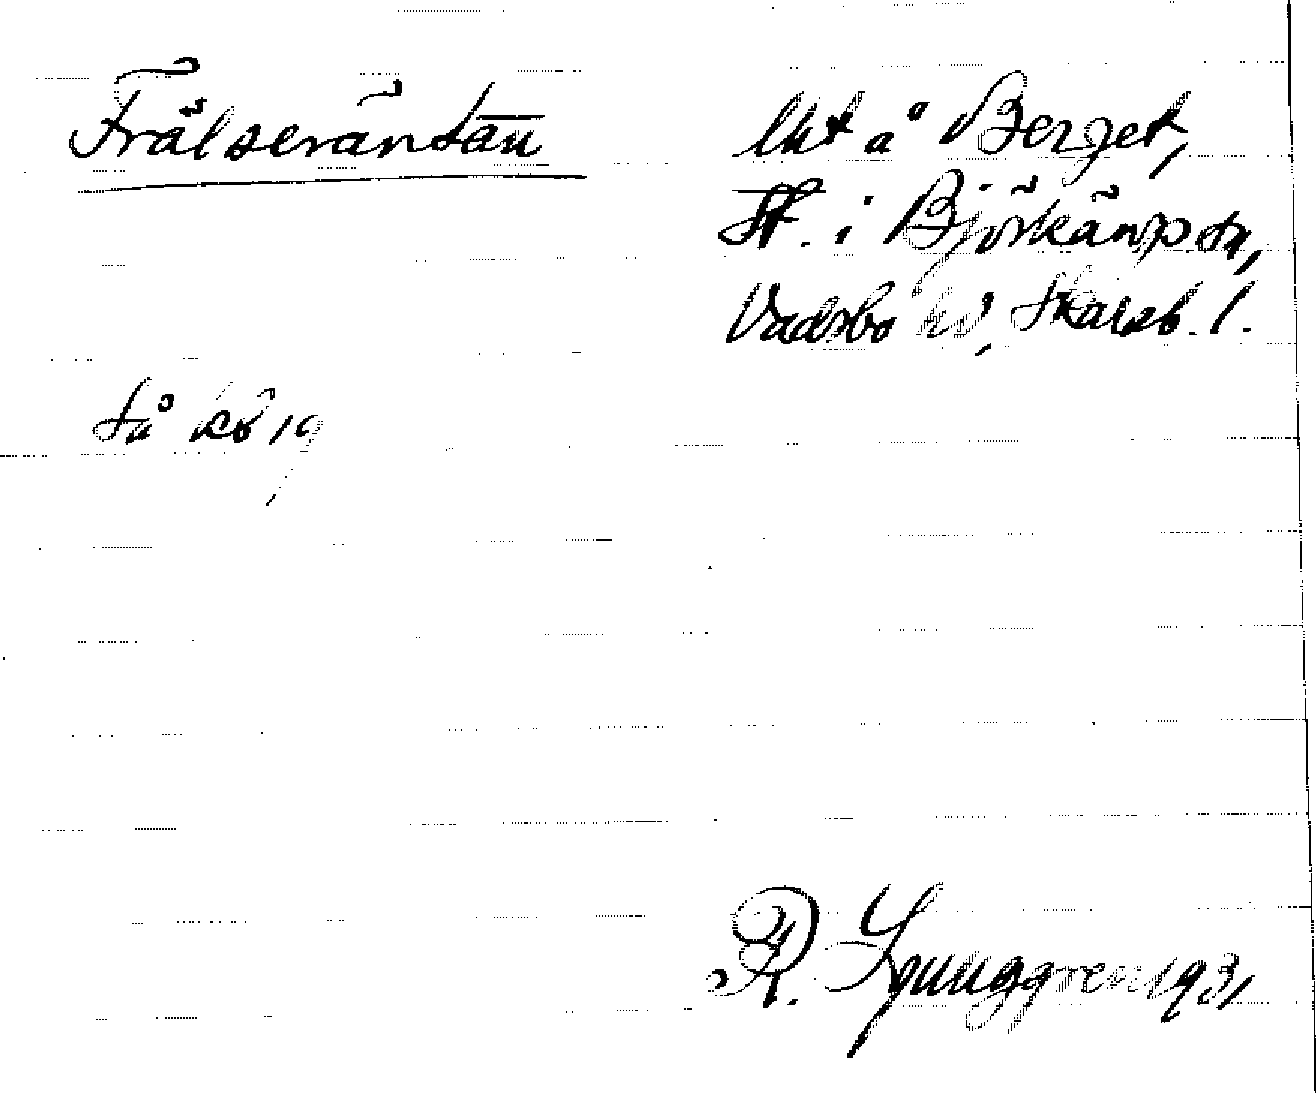 Frälseräntan
Urt å Berget,
St. i Björkängs sn,
Vadsbo hd, Skarab. l.
så kö 19
R. Ljunggren 1931